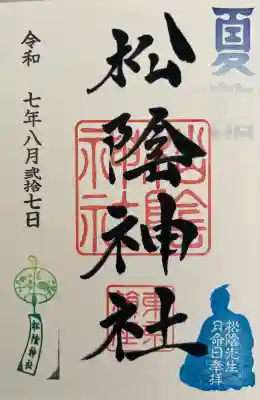 夏詣
松陰神社
令和 七年八月弐拾七日
松陰先生
月命日奉拝
松陰神社
松陰神社